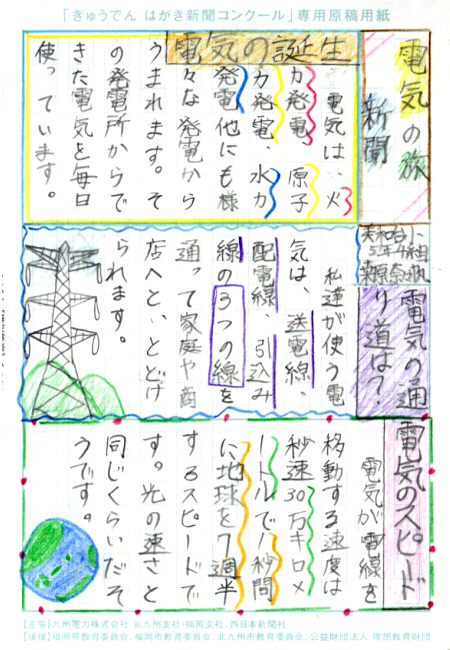 「きゅうでん はがき新聞コンクール」専用原稿用紙
電気の旅
新聞
5年4組
電気の誕生
電気は、火
力発電、原子
力発電、水力
発電他にも様
々な発電から
うまれます。そ
の発電所からで
きた電気を毎日
使っています。
電気の通
り道は?
私達が使う電
気は、送電線、
配電線 引込み
線の3つの線を
通って家庭や商
店へといとどけ
られます。
電気のスピード
電気が電線を
移動する速度は
秒速30万キロメ
ートルで1秒間
に地球を7週半
するスピードで
す。光の速さと
同じくらいだそ
うです。
【主催】九州電力株式会社 北九州支社・福岡支社、西日本新聞社
【後援】福岡県教育委員会、福岡市教育委員会、北九州市教育委員会、公益財団法人 理想教育財団